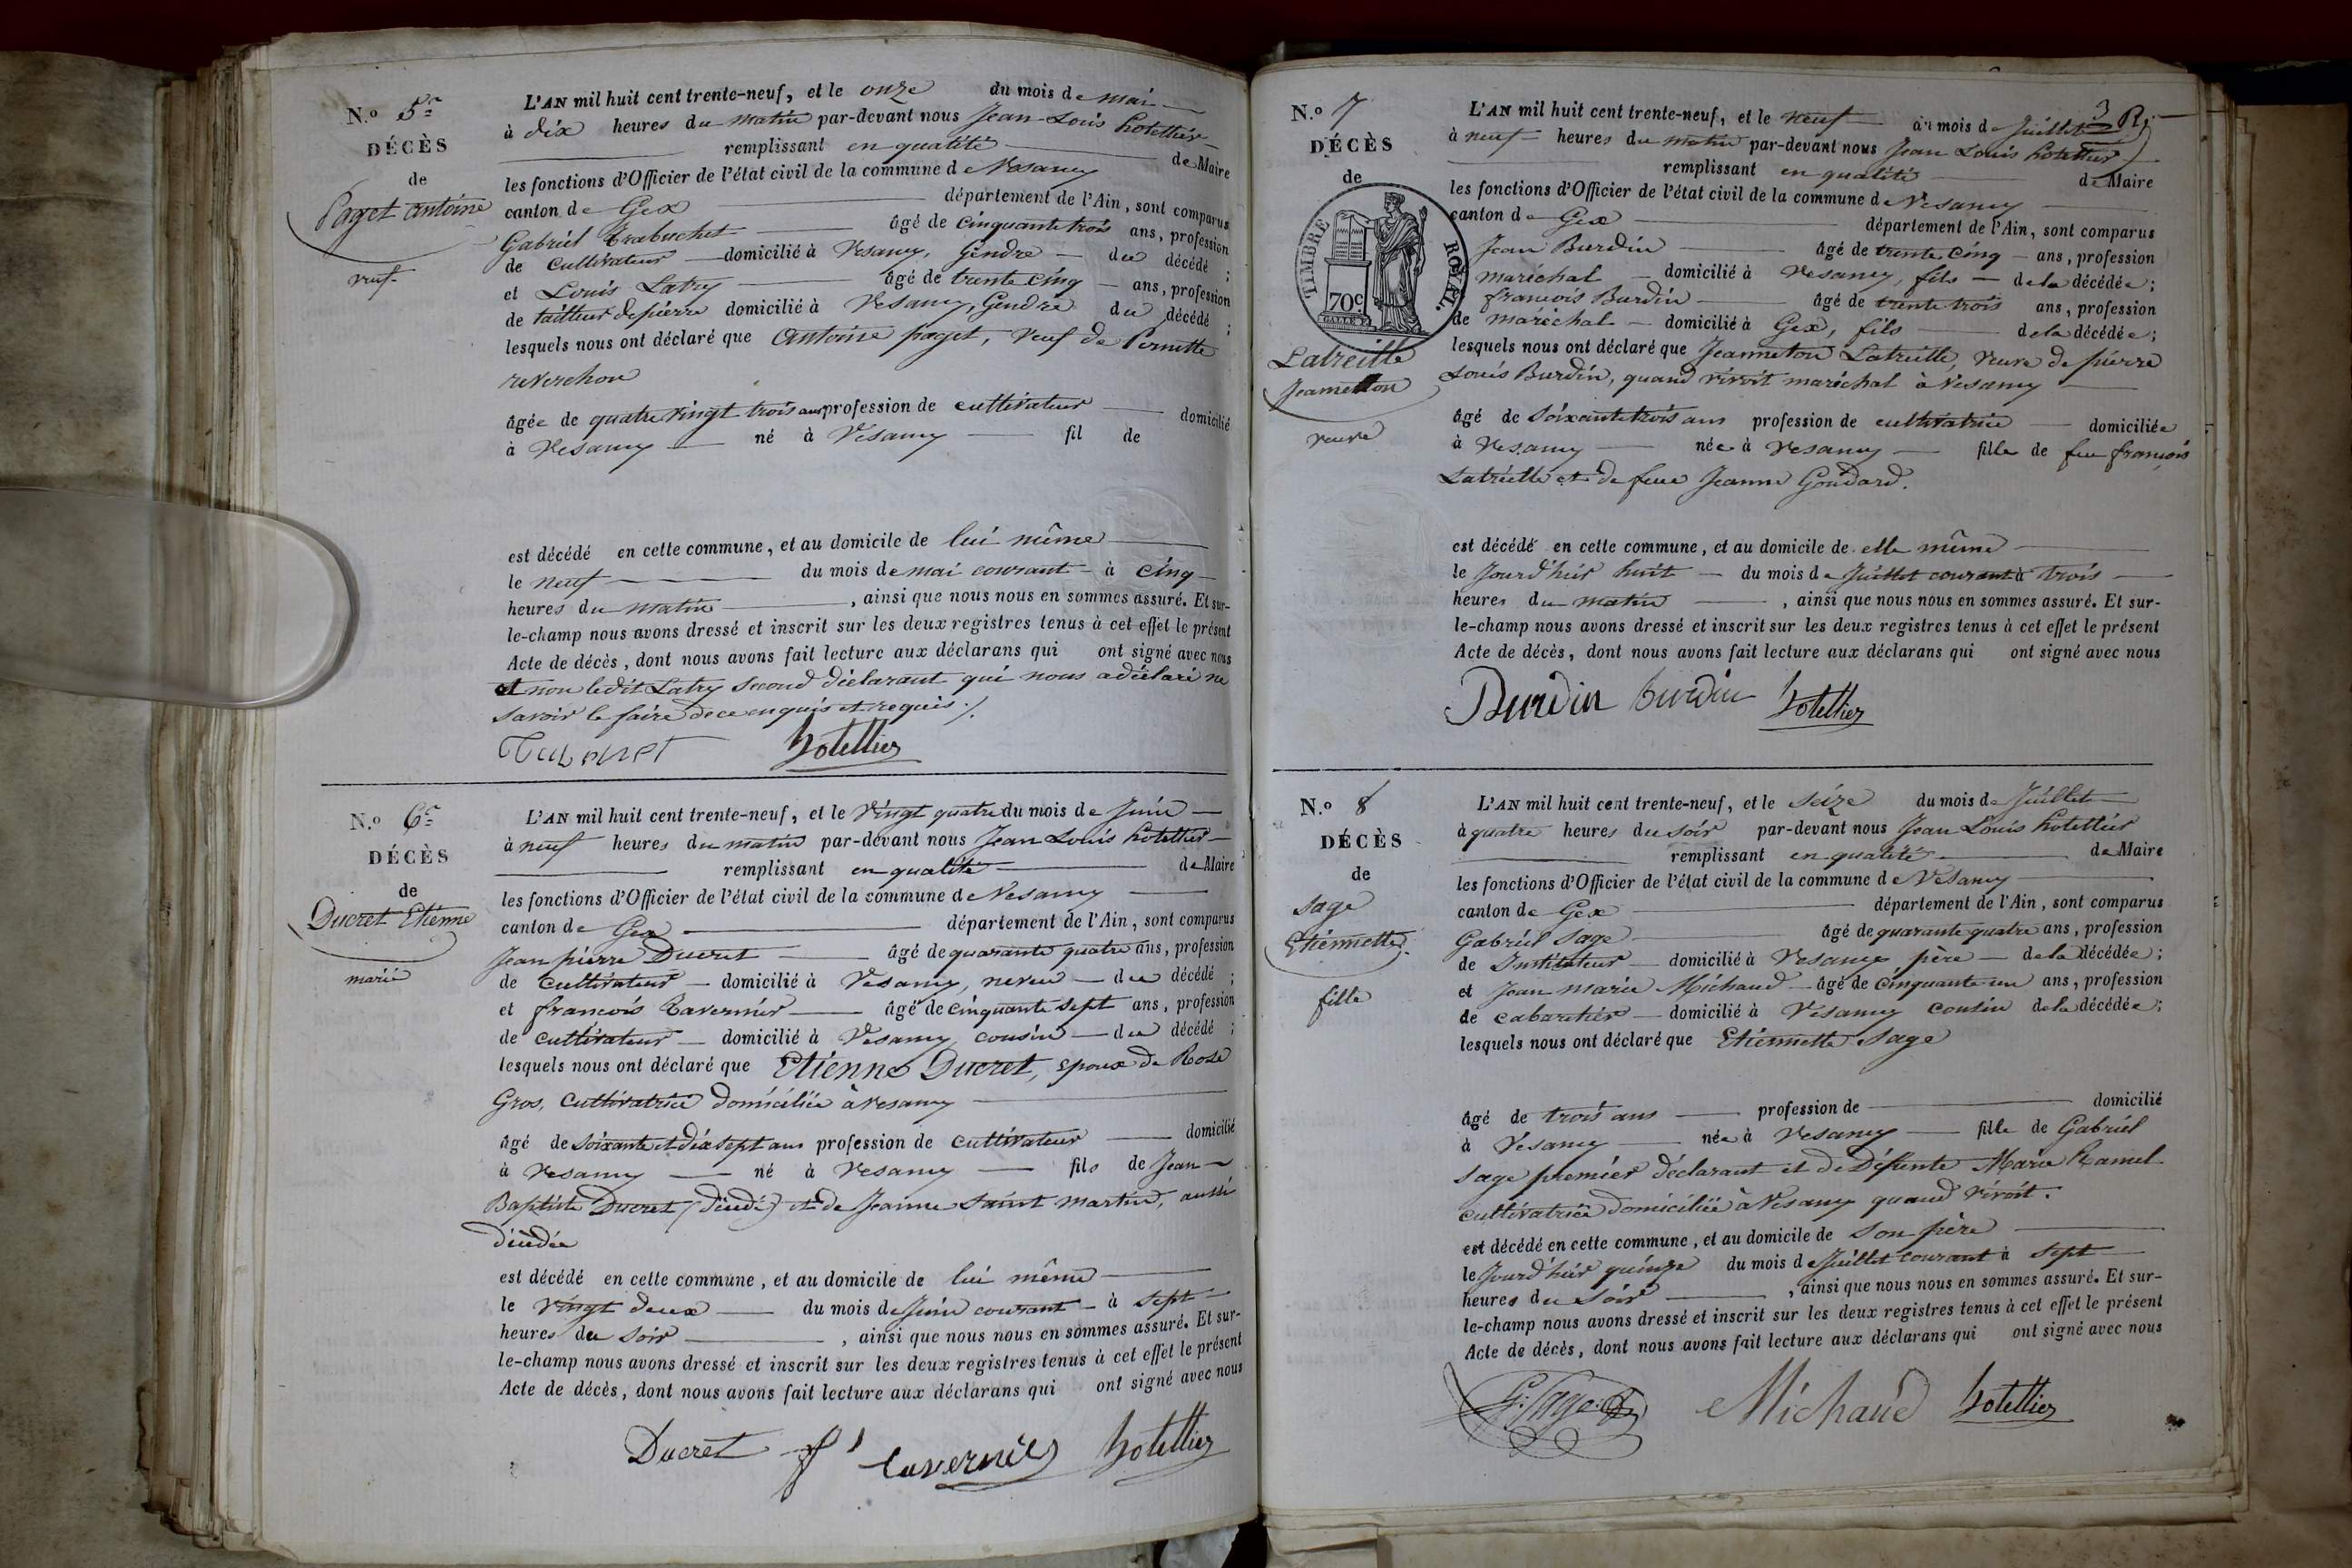 N.o 5e
DÉCÈS
de
Paget antoine
veuf
L'AN mil huit cent trente-neuf, et le onze du mois de mai
à dix heures du matin par-devant nous Jean-Louis hotellier
remplissant en qualité de Maire
les fonctions d'Officier de l'état civil de la commune de Vesancy
canton de Gex département de l'Ain, sont comparus
Gabriel Trabuchet âgé de cinquante trois ans, profession
de cultivateur domicilié à Vesancy, Gendre du décédé ;
et Louis Latry âgé de trente cinq ans, profession
de tailleur de pierre domicilié à Vesancy, Gendre du décédé ;
lesquels nous ont déclaré que antoine paget, veuf de Pernette
reverchon
âgée de quatre vingt trois ans profession de cultivateur domicilié
à Vesancy né à Vesancy fil de
est décédé en cette commune, et au domicile de lui même
le neuf du mois de mai courant à cinq
heures du matin, ainsi que nous nous en sommes assuré. Et sur-
le-champ nous avons dressé et inscrit sur les deux registres tenus à cet effet le présent
Acte de décès, dont nous avons fait lecture aux déclarans qui ont signé avec nous
et non ledit Latry second déclarant qui nous a déclaré ne
savoir le faire de ce enquis et requis ./.
hotellier
N.o 6e
DÉCÈS
de
Ducret Etienne
marié
L'AN mil huit cent trente-neuf, et le vingt quatre du mois de Juin
à neuf heures du matin par-devant nous Jean Louis hotellier
remplissant en qualité de Maire
les fonctions d'Officier de l'état civil de la commune de Vesancy
canton de Gex département de l'Ain, sont comparus
Jean pierre Ducret âgé de quarante quatre ans, profession
de cultivateur domicilié à Vesancy, neveu du décédé ;
et francois Tavernier âgé de cinquante sept ans, profession
de cultivateur domicilié à Vesancy cousin du décédé ;
lesquels nous ont déclaré que Etienne Ducret, epoux de Rose
Gros, cultivatrice domiciliée à vesancy
âgé de soixante et dix sept ans profession de cultivateur domicilié
à Vesancy né à Vesancy fils de Jean
Baptiste Ducret (dcédé) et de Jeanne Saint martin, aussi
dcédée
est décédé en cette commune, et au domicile de lui même
le vingt deux du mois de Juin courant à sept
heures du soir, ainsi que nous nous en sommes assuré. Et sur-
le-champ nous avons dressé et inscrit sur les deux registres tenus à cet effet le présent
Acte de décès, dont nous avons fait lecture aux déclarans qui ont signé avec nous
Ducret fs tavernier hotellier
3 R.
N.o 7
DÉCÈS
de
TIMBRE ROYAL
70c.
Latreille
Jeanneton
veuve
L'AN mil huit cent trente-neuf, et le neuf du mois de Juillet
à neuf heures du matin par-devant nous Jean Louis hotellier
remplissant en qualité de Maire
les fonctions d'Officier de l'état civil de la commune de Vesancy
canton de Gex département de l'Ain, sont comparus
Jean Burdin âgé de trente cinq ans, profession
maréchal domicilié à Vesancy, fils de la décédée ;
francois Burdin âgé de trente trois ans, profession
de maréchal domicilié à Gex, fils de la décédée ;
lesquels nous ont déclaré que Jeanneton Latreille, veuve de pierre
Louis Burdin, quand vivoit maréchal à Vesancy
âgé de soixante trois ans profession de cultivatrice domiciliée
à Vesancy née à Vesancy fille de feu françois
Latreille et de feue Jeanne Goudard.
est décédé en cette commune, et au domicile de elle même
le Jourd'hier huit du mois de Juillet courant à trois
heures du matin, ainsi que nous nous en sommes assuré. Et sur-
le-champ nous avons dressé et inscrit sur les deux registres tenus à cet effet le présent
Acte de décès, dont nous avons fait lecture aux déclarans qui ont signé avec nous
Burdin burdin hotellier
N.o 8
DÉCÈS
de
Sage
Etiennette.
fille
L'AN mil huit cent trente-neuf, et le seize du mois de Juillet
à quatre heures du soir par-devant nous Jean Louis hotellier
remplissant en qualité de Maire
les fonctions d'Officier de l'état civil de la commune de Vesancy
canton de Gex département de l'Ain, sont comparus
Gabriel Sage âgé de quarante quatre ans, profession
de Instituteur domicilié à Vesancy père de la décédée ;
et Jean marie Michaud âgé de cinquante un ans, profession
de cabaretier domicilié à Vesancy cousin de la décédée ;
lesquels nous ont déclaré que Etiennette Sage
âgé de trois ans profession de domicilié
à Vesancy née à Vesancy fille de Gabriel
Sage premier déclarant et de Défunte Marie Ramel
cultivatrice domiciliée à Vesancy quand vivoit.
est décédé en cette commune, et au domicile de son père
le Jourd'hier quinze du mois de Juillet courant à sept
heures du soir, ainsi que nous nous en sommes assuré. Et sur-
le-champ nous avons dressé et inscrit sur les deux registres tenus à cet effet le présent
Acte de décès, dont nous avons fait lecture aux déclarans qui ont signé avec nous
G. Sage Michaud hotellier